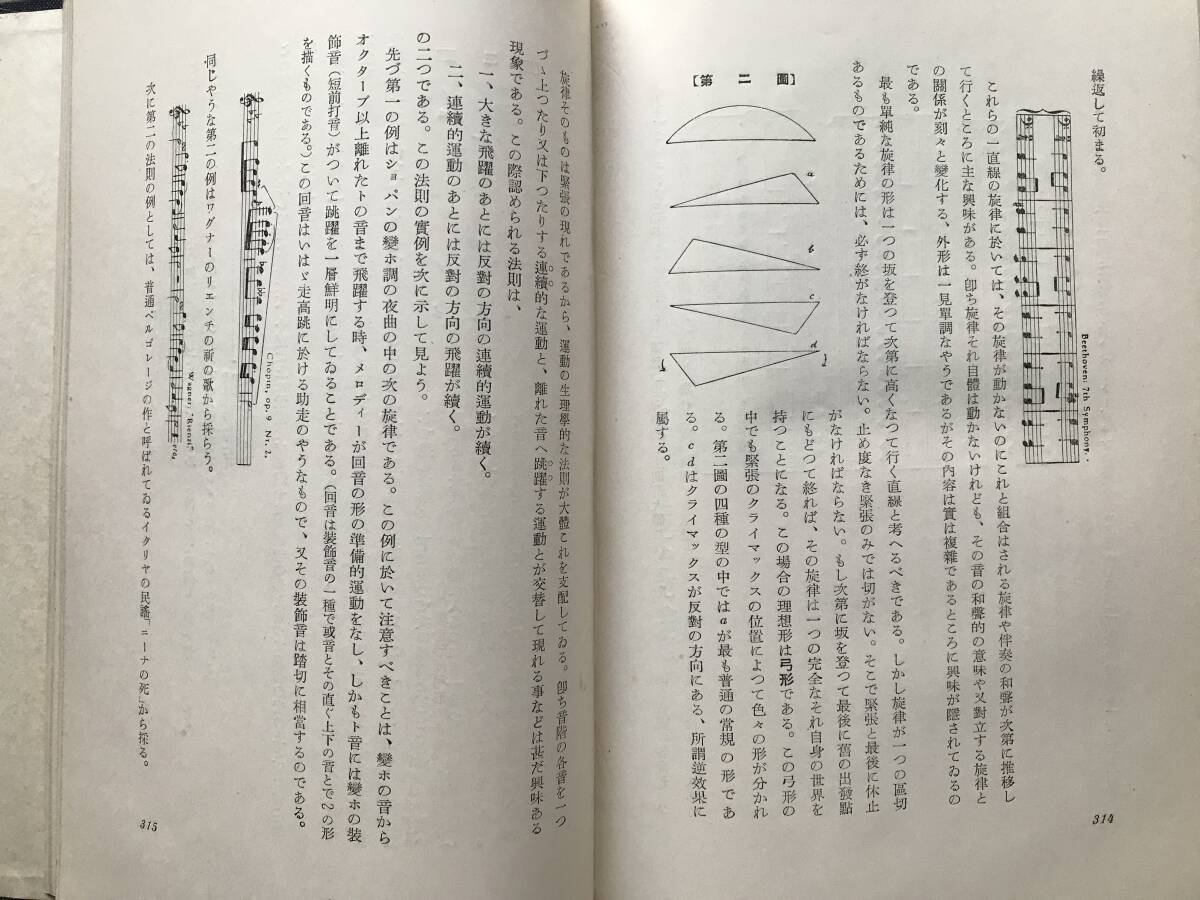 繰返して初まる。
Beethoven: 7th Symphony.
これらの一直線の旋律に於いては、その旋律が動かないのにこれと組合はされる旋律や伴奏の和聲が次第に推移し
て行くところに主な興味がある。卽ち旋律それ自體は動かないけれども、その音の和聲的の意味や又對立する旋律と
の關係が刻々と變化する、外形は一見單調なやうであるがその内容は實は複雜であるところに興味が隱されてゐるの
である。
最も單純な旋律の形は一つの坂を登つて次第に高くなつて行く直線と考へるべきである。しかし旋律が一つの區切
あるものであるためには、必ず終がなければならない。止め度なき緊張のみでは切がない。そこで緊張と最後に休止
がなければならない。もし次第に坂を登つて最後に舊の出發點
にもどつて終れば、その旋律は一つの完全なそれ自身の世界を
持つことになる。この場合の理想形は弓形である。この弓形の
中でも緊張のクライマックスの位置によつて色々の形が分かれ
る。第二圖の四種の型の中ではaが最も普通の常規の形であ
る。cdはクライマックスが反對の方向にある、所謂逆效果に
屬する。
【第二圖】
a
b
c
d
314
旋律そのものは緊張の現れであるから、運動の生理學的な法則が大體これを支配してゐる。卽ち音階の各音を一つ
づゝ上つたり又は下つたりする連續的な運動と、離れた音へ跳躍する運動とが交替して現れる事などは甚だ興味ある
現象である。この際認められる法則は、
一、大きな飛躍のあとには反對の方向の連續的運動が續く。
二、連續的運動のあとには反對の方向の飛躍が續く。
の二つである。この法則の實例を次に示して見よう。
先づ第一の例はショパンの變ホ調の夜曲の中の次の旋律である。この例に於いて注意すべきことは、變ホの音から
オクターブ以上離れたトの音まで飛躍する時、メロディーが回音の形の準備的運動をなし、しかもト音には變ホの裝
飾音(短前打音)がついて跳躍を一層鮮明にしてゐることである。(回音は裝飾音の一種で或音とその直ぐ上下の音とで2の形
を描くものである。)この回音はいはゞ走高跳に於ける助走のやうなもので、又その裝飾音は踏切に相當するのである。
Chopin, op. 9 Nr. 2.
同じやうな第二の例はワグナーのリエンチの祈の歌から採らう。
Wagner: "Rienzi"
次に第二の法則の例としては、普通ペルゴレージの作と呼ばれてゐるイタリヤの民謠「ニーナの死」から採る。
315